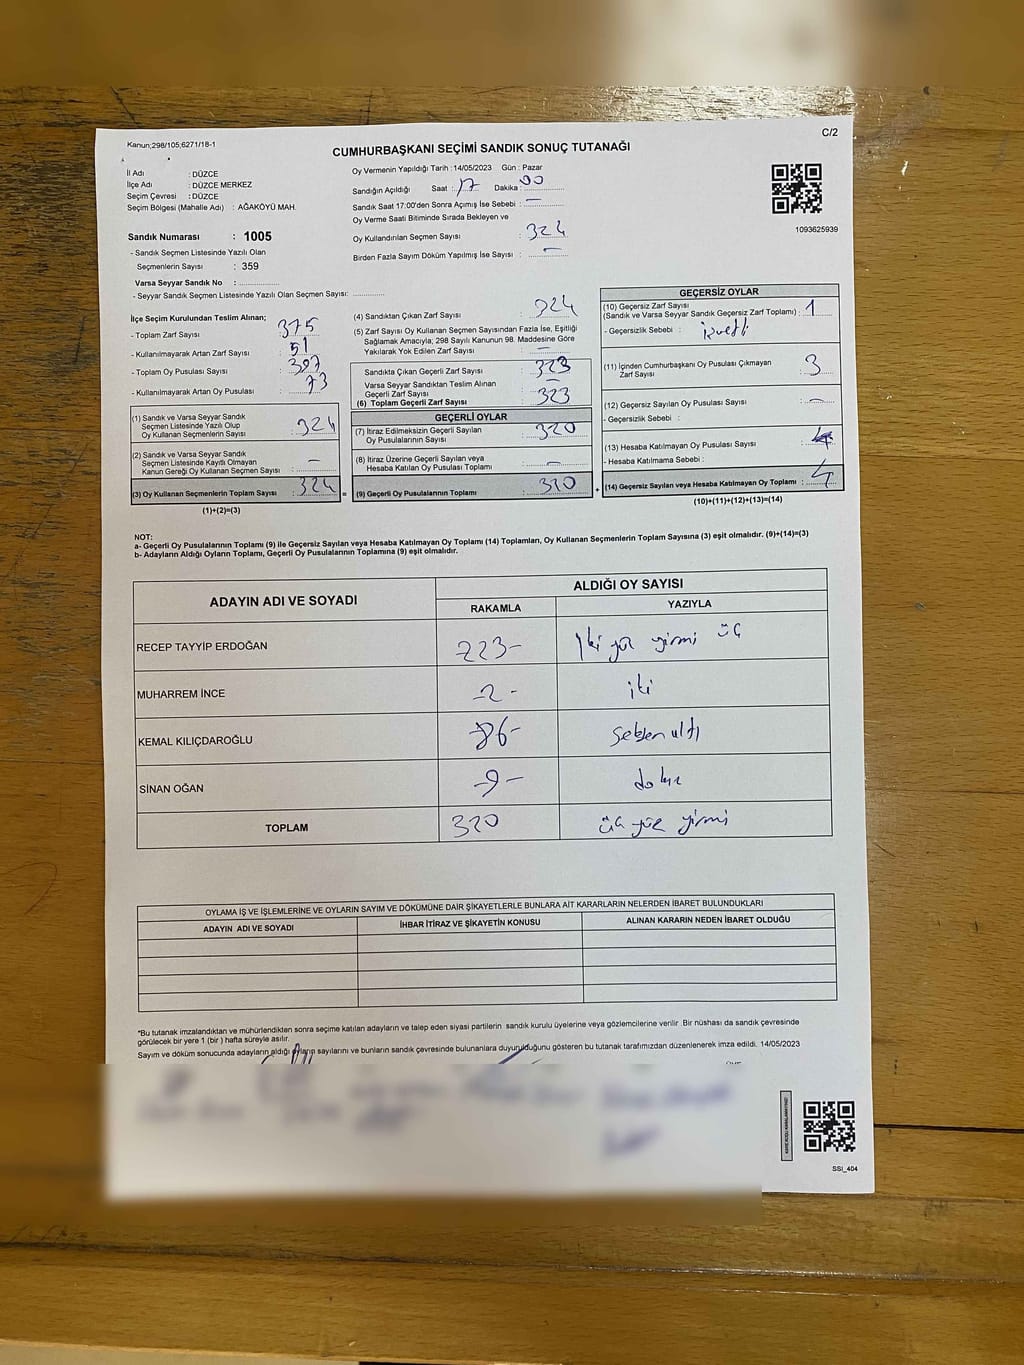 Kanun;298/105;6271/18-1
C/2
CUMHURBAŞKANI SEÇİMİ SANDIK SONUÇ TUTANAĞI
İl Adı : DÜZCE
İlçe Adı : DÜZCE MERKEZ
Seçim Çevresi : DÜZCE
Seçim Bölgesi (Mahalle Adı) : AĞAKÖYÜ MAH.
Sandık Numarası : 1005
- Sandık Seçmen Listesinde Yazılı Olan
Seçmenlerin Sayısı : 359
Varsa Seyyar Sandık No :
- Seyyar Sandık Seçmen Listesinde Yazılı Olan Seçmen Sayısı:
Oy Vermenin Yapıldığı Tarih :14/05/2023 Gün : Pazar
Sandığın Açıldığı Saat : 17 Dakika : 00
Sandık Saat 17:00'den Sonra Açımış İse Sebebi : —
Oy Verme Saati Bitiminde Sırada Bekleyen ve
Oy Kullandırılan Seçmen Sayısı : 324
Birden Fazla Sayım Döküm Yapılmış İse Sayısı : —
1093625939
İlçe Seçim Kurulundan Teslim Alınan;
- Toplam Zarf Sayısı : 375
- Kullanılmayarak Artan Zarf Sayısı : 51
- Toplam Oy Pusulası Sayısı : 397
- Kullanılmayarak Artan Oy Pusulası : 73
(1) Sandık ve Varsa Seyyar Sandık
Seçmen Listesinde Yazılı Olup
Oy Kullanan Seçmenlerin Sayısı : 324
(2) Sandık ve Varsa Seyyar Sandık
Seçmen Listesinde Kayıtlı Olmayan
Kanun Gereği Oy Kullanan Seçmen Sayısı : —
(3) Oy Kullanan Seçmenlerin Toplam Sayısı : 324 =
(1)+(2)=(3)
(4) Sandıktan Çıkan Zarf Sayısı : 324
(5) Zarf Sayısı Oy Kullanan Seçmen Sayısından Fazla İse, Eşitliği
Sağlamak Amacıyla; 298 Sayılı Kanunun 98. Maddesine Göre
Yakılarak Yok Edilen Zarf Sayısı : —
Sandıkta Çıkan Geçerli Zarf Sayısı : 323
Varsa Seyyar Sandıktan Teslim Alınan
Geçerli Zarf Sayısı : —
(6) Toplam Geçerli Zarf Sayısı : 323
GEÇERLİ OYLAR
(7) İtiraz Edilmeksizin Geçerli Sayılan
Oy Pusulalarının Sayısı : 320
(8) İtiraz Üzerine Geçerli Sayılan veya
Hesaba Katılan Oy Pusulası Toplamı : —
(9) Geçerli Oy Pusulalarının Toplamı : 320 +
GEÇERSİZ OYLAR
(10) Geçersiz Zarf Sayısı
(Sandık ve Varsa Seyyar Sandık Geçersiz Zarf Toplamı) : 1
- Geçersizlik Sebebi :
(11) İçinden Cumhurbaşkanı Oy Pusulası Çıkmayan
Zarf Sayısı : 3
(12) Geçersiz Sayılan Oy Pusulası Sayısı : —
- Geçersizlik Sebebi :
(13) Hesaba Katılmayan Oy Pusulası Sayısı :
- Hesaba Katılmama Sebebi :
(14) Geçersiz Sayılan veya Hesaba Katılmayan Oy Toplamı : 4
(10)+(11)+(12)+(13)=(14)
NOT:
a- Geçerli Oy Pusulalarının Toplamı (9) ile Geçersiz Sayılan veya Hesaba Katılmayan Oy Toplamı (14) Toplamları, Oy Kullanan Seçmenlerin Toplam Sayısına (3) eşit olmalıdır. (9)+(14)=(3)
b- Adayların Aldığı Oyların Toplamı, Geçerli Oy Pusulalarının Toplamına (9) eşit olmalıdır.
ADAYIN ADI VE SOYADI ALDIĞI OY SAYISI
RAKAMLA YAZIYLA
RECEP TAYYİP ERDOĞAN 223- İki yüz yirmi üç
MUHARREM İNCE -2- iki
KEMAL KILIÇDAROĞLU -86- seksen altı
SİNAN OĞAN -9- dokuz
TOPLAM 320 üç yüz yirmi
OYLAMA İŞ VE İŞLEMLERİNE VE OYLARIN SAYIM VE DÖKÜMÜNE DAİR ŞİKAYETLERLE BUNLARA AİT KARARLARIN NELERDEN İBARET BULUNDUKLARI
ADAYIN ADI VE SOYADI İHBAR İTİRAZ VE ŞİKAYETİN KONUSU ALINAN KARARIN NEDEN İBARET OLDUĞU
*Bu tutanak imzalandıktan ve mühürlendikten sonra seçime katılan adayların ve talep eden siyasi partilerin sandık kurulu üyelerine veya gözlemcilerine verilir. Bir nüshası da sandık çevresinde
görülecek bir yere 1 (bir ) hafta süreyle asılır.
Sayım ve döküm sonucunda adayların aldığı oyların sayılarını ve bunların sandık çevresinde bulunanlara duyurulduğunu gösteren bu tutanak tarafımızdan düzenlenerek imza edildi. 14/05/2023
SSİ_404